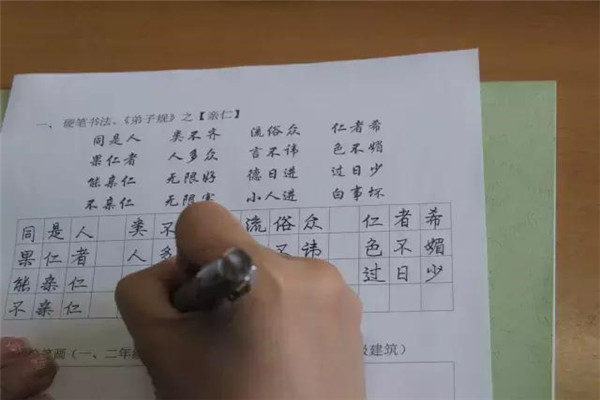 一、硬笔书法、《弟子规》之【亲仁】
同是人 类不齐 流俗众 仁者希
果仁者 人多众 言不讳 色不媚
能亲仁 无限好 德日进 过日少
不亲仁 无限害 小人进 百事坏
同是人 类不 流俗众 仁者希
果仁者 人多 不讳 色不媚
能亲仁 过日少
不亲仁
笔画(一、二年 级建筑)